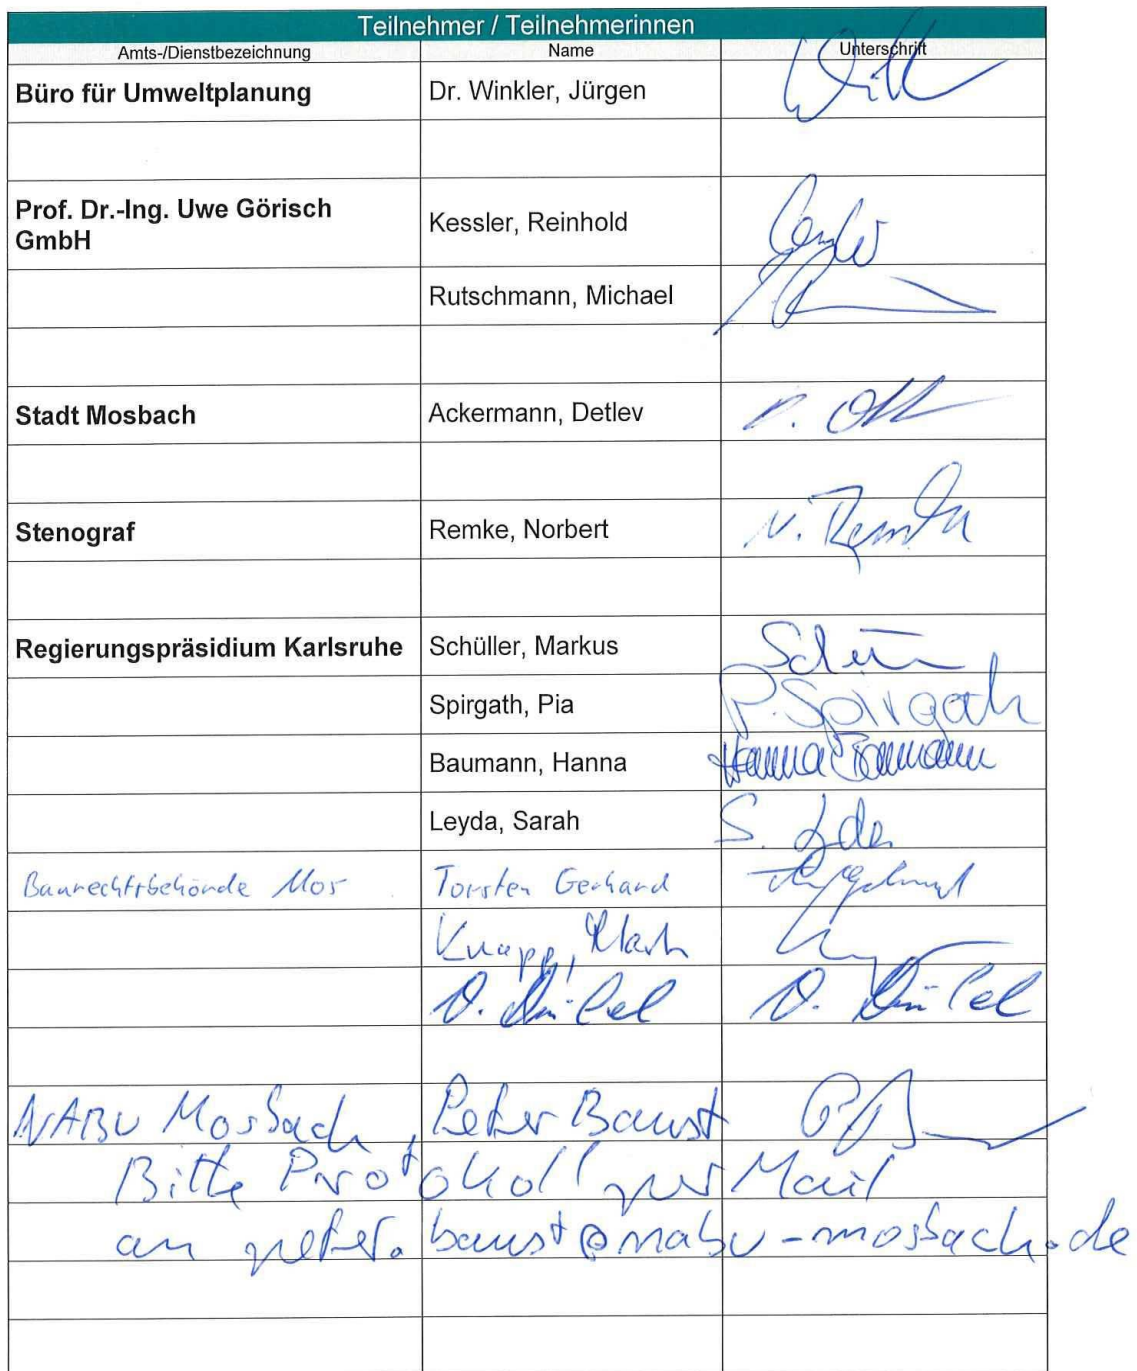 Teilnehmer / Teilnehmerinnen
Amts-/Dienstbezeichnung Name Unterschrift
Büro für Umweltplanung Dr. Winkler, Jürgen
Prof. Dr.-Ing. Uwe Görisch
GmbH
Kessler, Reinhold
Rutschmann, Michael
Stadt Mosbach Ackermann, Detlev
Stenograf Remke, Norbert N. Remke
Regierungspräsidium Karlsruhe Schüller, Markus
Spirgath, Pia P. Spirgath
Baumann, Hanna Hanna Baumann
Leyda, Sarah S.
Baurechtsbehörde Mos Torsten Gerhard
Knapp,
D.
NABU Mosbach, Peter Baust
Bitte Protokoll per Mail
an peter.baust@nabu-mosbach.de